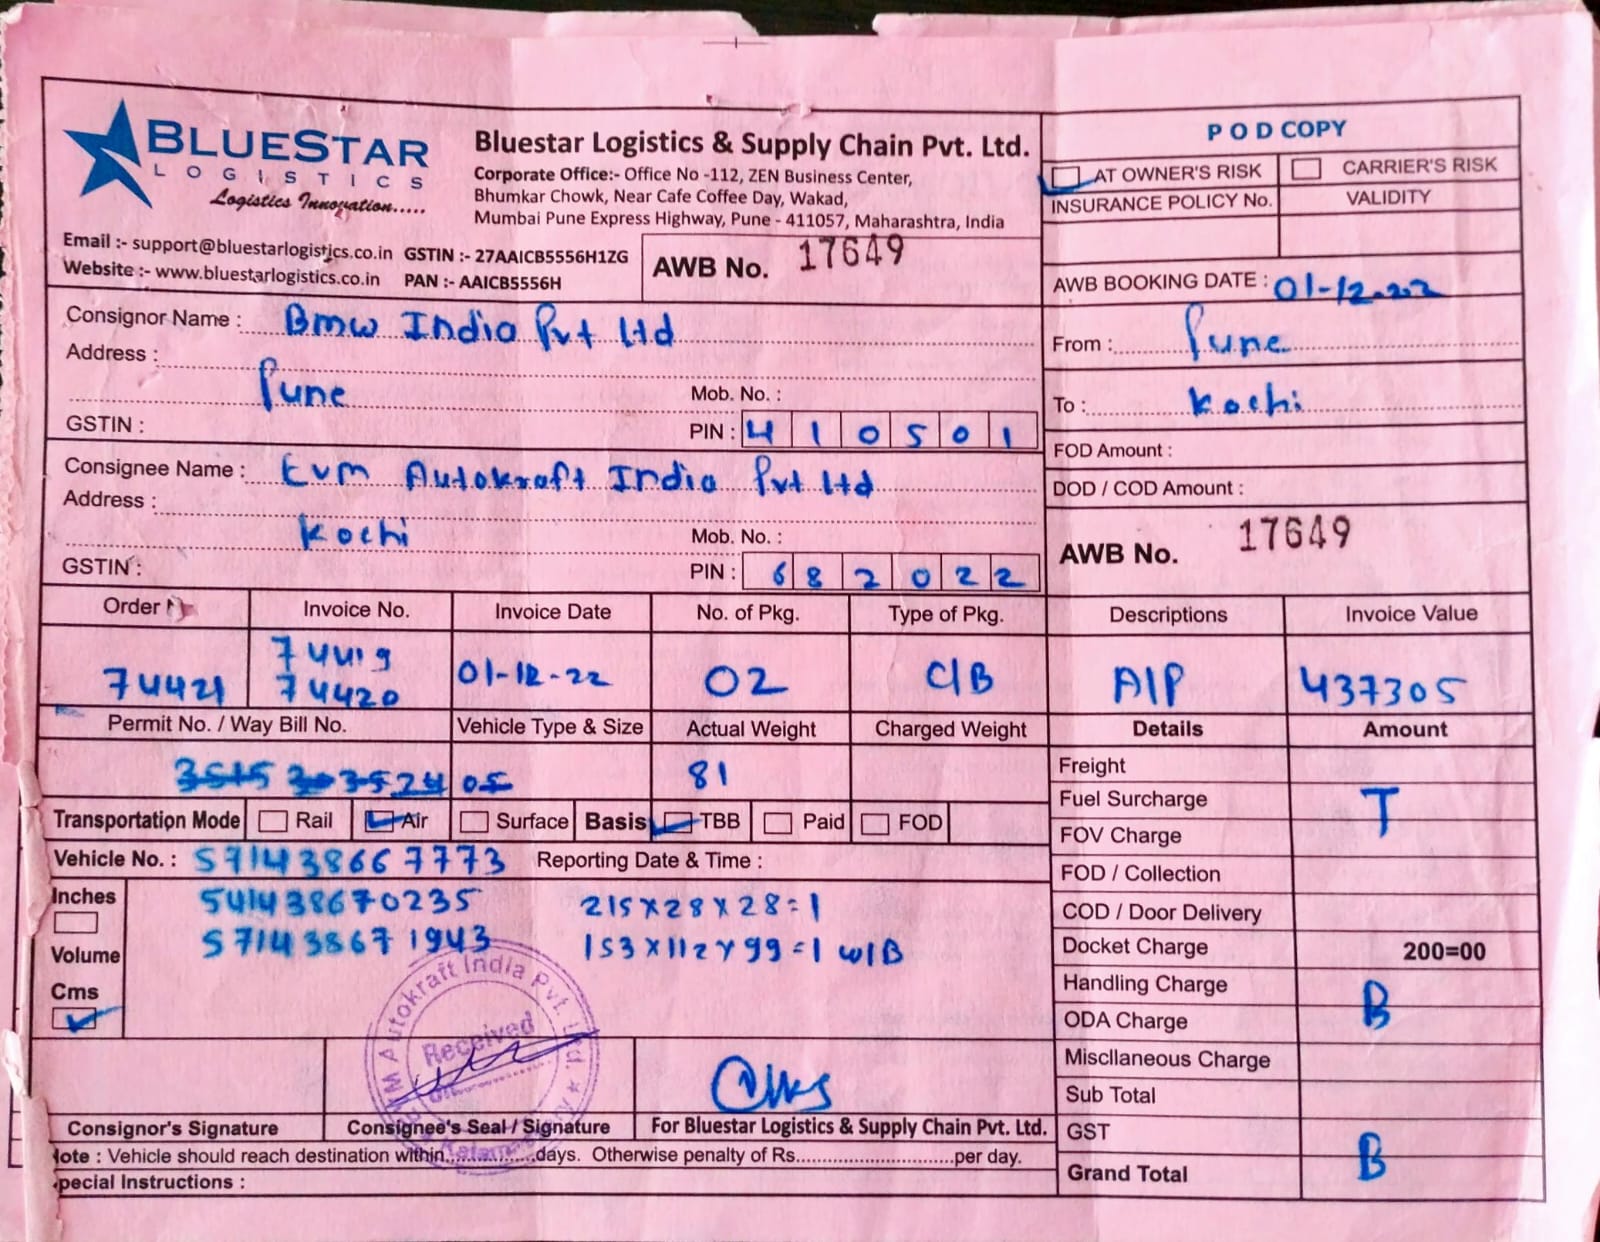 BLUESTAR
LOGISTICS
Logistics Innovation.....
Bluestar Logistics & Supply Chain Pvt. Ltd.
Corporate Office:- Office No -112, ZEN Business Center,
Bhumkar Chowk, Near Cafe Coffee Day, Wakad,
Mumbai Pune Express Highway, Pune - 411057, Maharashtra, India
Email :- support@bluestarlogistics.co.in GSTIN :- 27AAICB5556H1ZG
Website :- www.bluestarlogistics.co.in PAN :- AAICB5556H
AWB No. 17649
POD COPY
AT OWNER'S RISK CARRIER'S RISK
INSURANCE POLICY No. VALIDITY
AWB BOOKING DATE : 01-12-22
From : Pune
To : Kochi
FOD Amount :
DOD / COD Amount :
AWB No. 17649
Consignor Name : Bmw India Pvt Ltd
Address :
Pune Mob. No. :
GSTIN : PIN : 410501
Consignee Name : EVM Autokraft India Pvt Ltd
Address :
Kochi Mob. No. :
GSTIN : PIN : 682022
Order Invoice No. Invoice Date No. of Pkg. Type of Pkg. Descriptions Invoice Value
74419
74421 74420 01-12-22 02 C/B A/P 437305
Permit No. / Way Bill No. Vehicle Type & Size Actual Weight Charged Weight Details Amount
81
Transportation Mode Rail Air Surface Basis TBB Paid FOD
Vehicle No. : 571438667773 Reporting Date & Time :
Inches 541438670235 215x28x28=1
571438671943 153x112x99=1 W/B
Volume
Cms
Freight
Fuel Surcharge T
FOV Charge
FOD / Collection
COD / Door Delivery
Docket Charge 200=00
Handling Charge
ODA Charge B
Miscllaneous Charge
Sub Total
GST
Grand Total B
Autokraft India Pvt. Ltd.
Received
Consignor's Signature Consignee's Seal / Signature For Bluestar Logistics & Supply Chain Pvt. Ltd.
Note : Vehicle should reach destination within..............days. Otherwise penalty of Rs.........................per day.
Special Instructions :